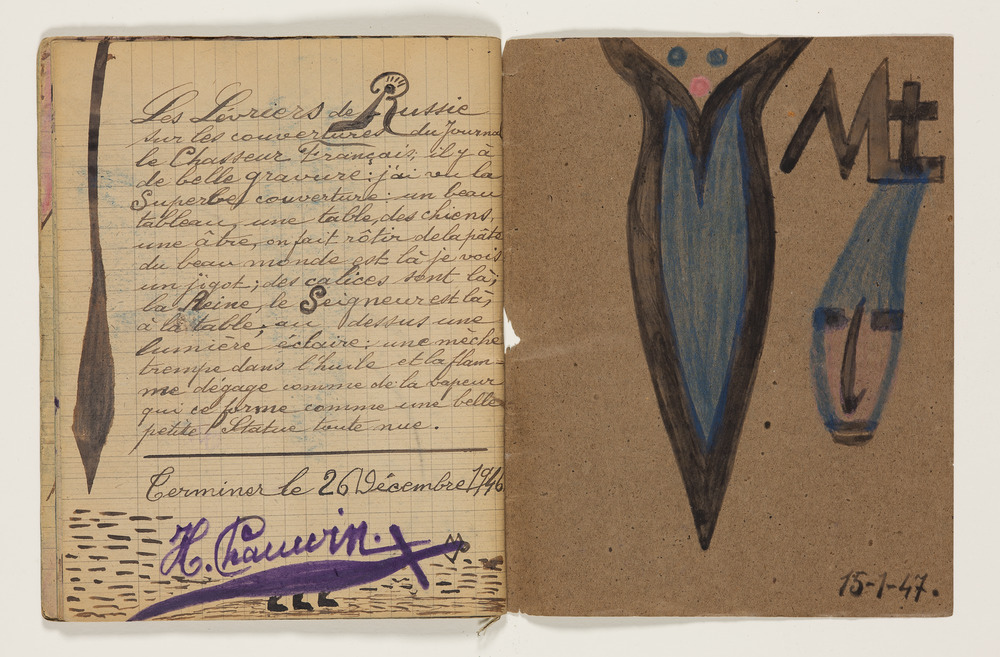 Les Lévriers de Russie
sur les couvertures du Journa
le Chasseur Français, il y à
de belle gravure: j'ai vu la
Superbe couverture: un beau
tableau, une table, des chiens,
une âbre, on fait rôtir de la pâte
du beau monde est là je vois
un jigot; des calices sont là;
la Reine, le Seigneur est là;
à la table; au dessus une
lumière éclaire: une mèche
trempe dans l'huile et la flam-
me dégage comme de la vapeur
qui ce forme comme une belle
petite Statue toute nue.
Terminer le 26 Décembre 1946
H. Chauvin.
Mt
15-1-47.